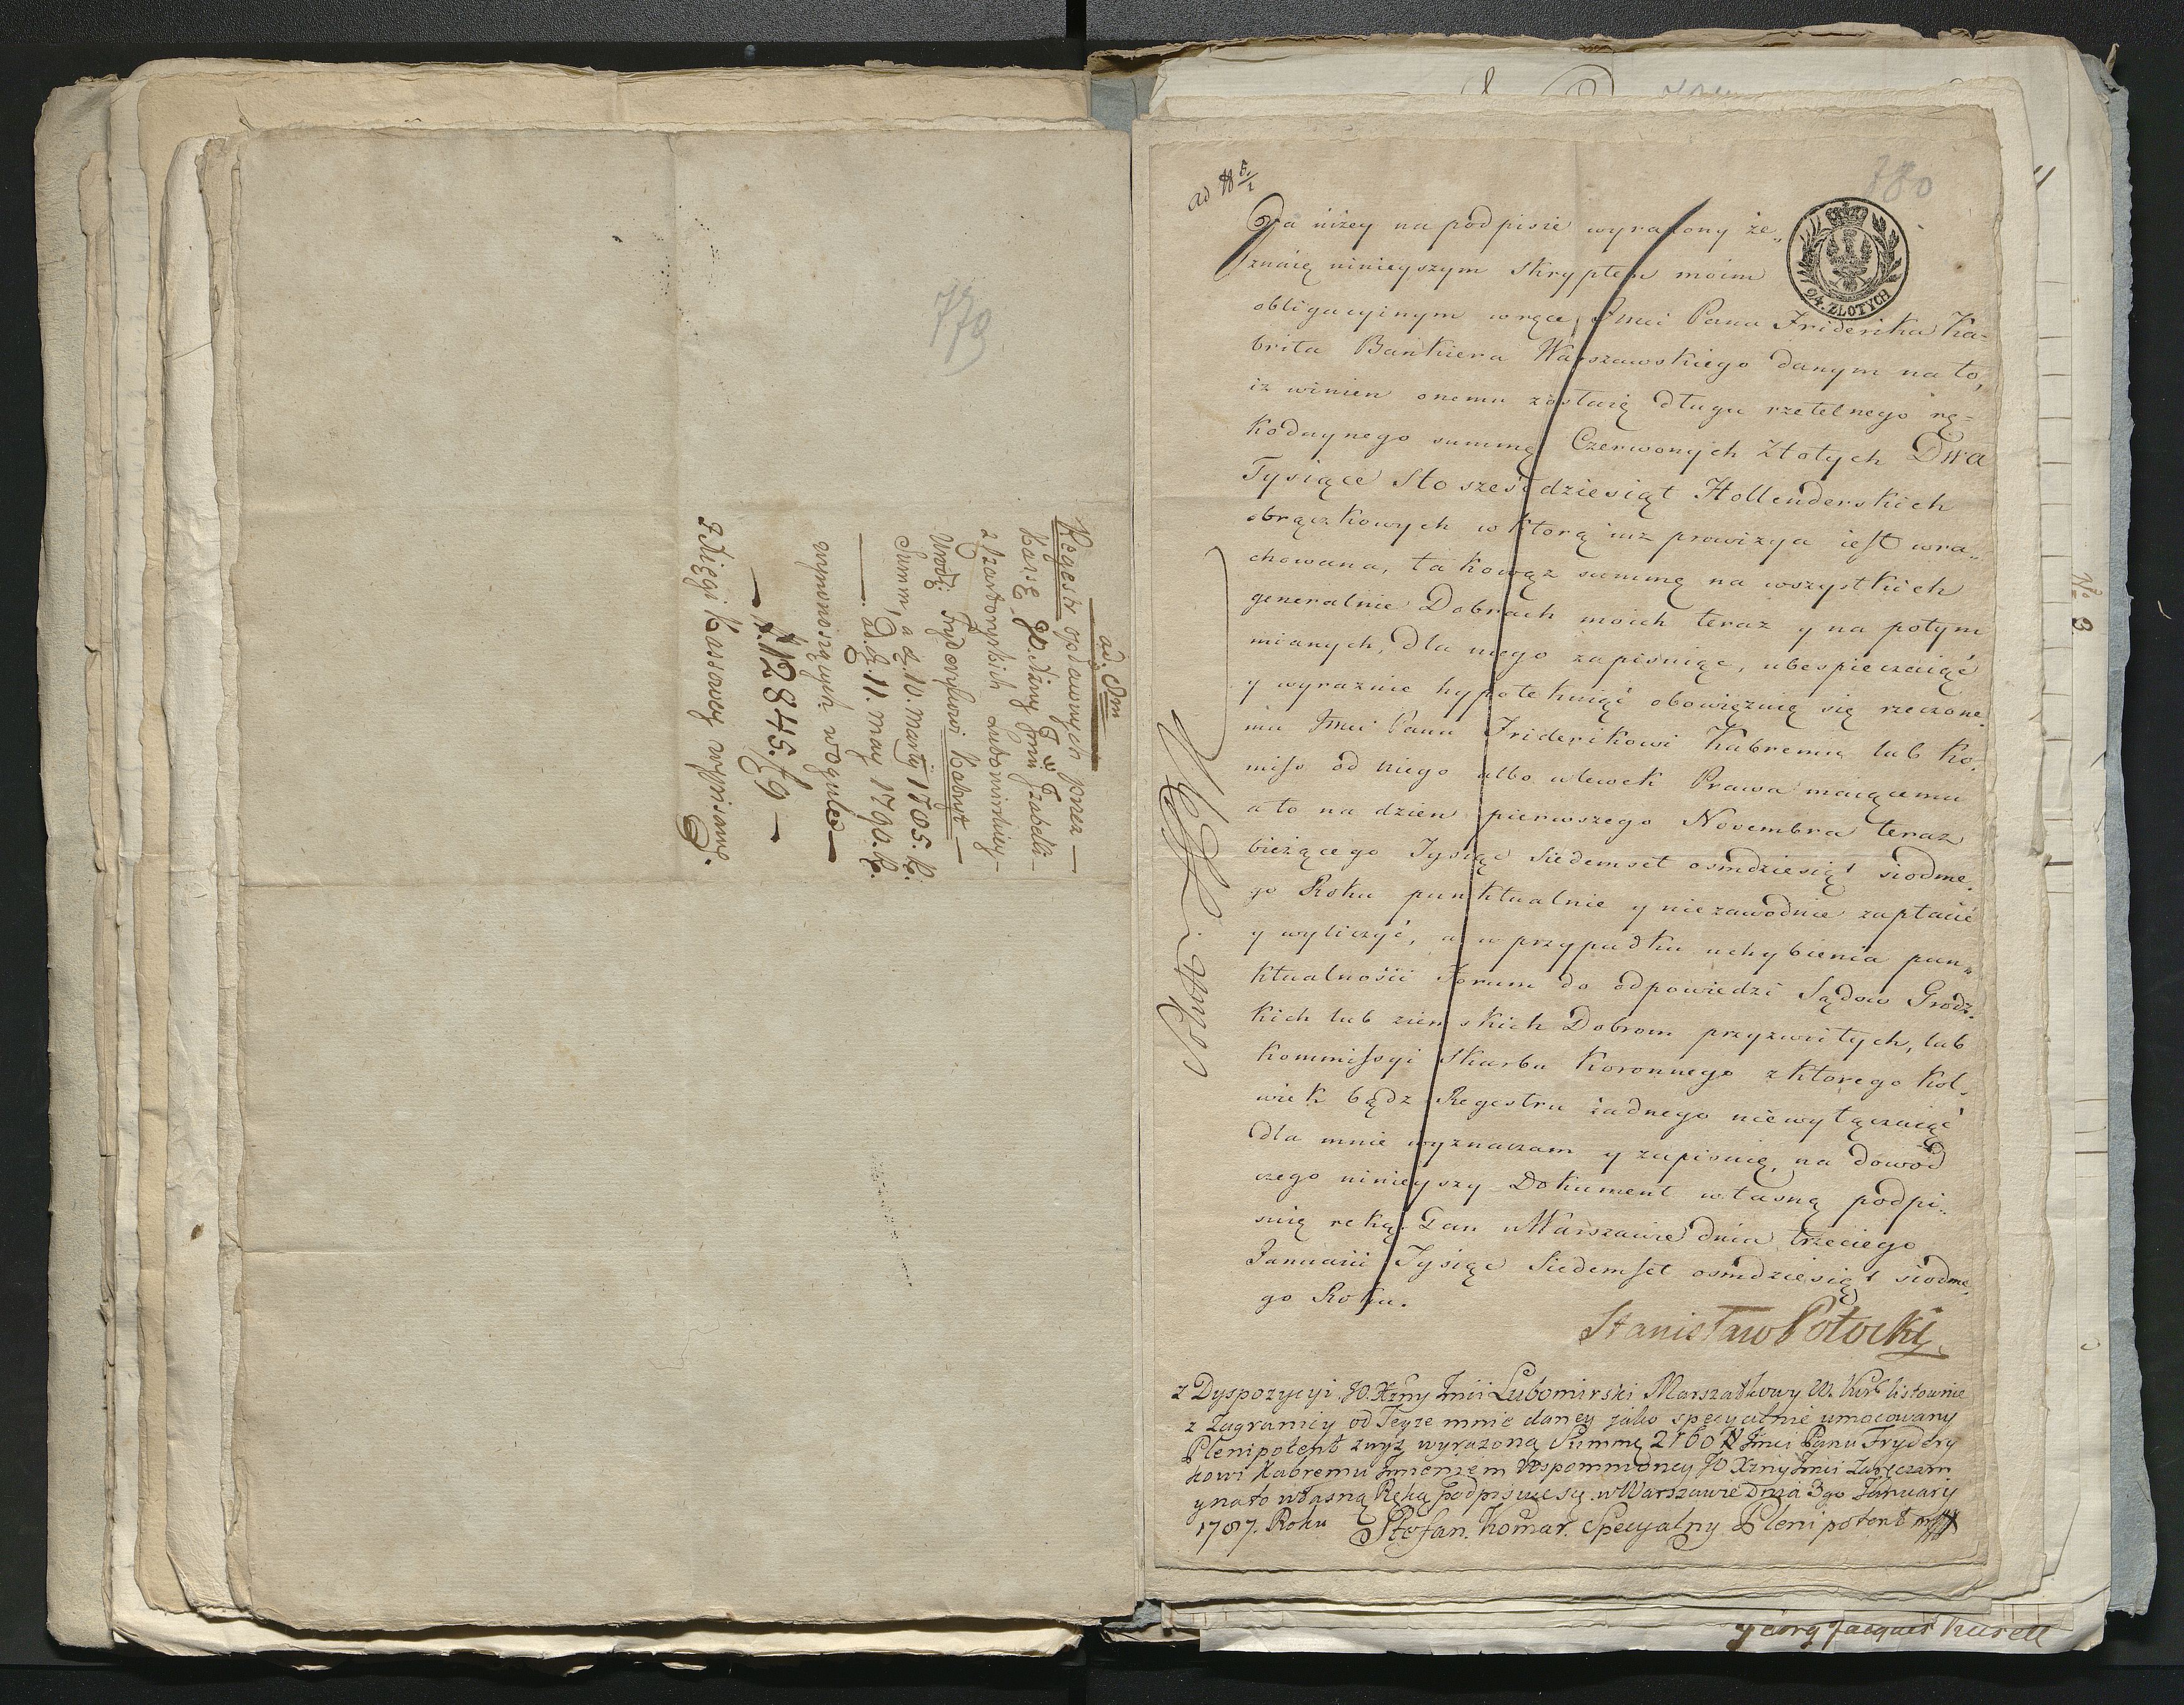 779
ad Sm
Regestr opłaconych przez —
Kassę JO. Xiżny Jmci Izabelli —
z Czartoryskich Lubomirskiey —
Urodz: Frydrykowi Kabryt —
Summ, a d. 10. Marty 1785. R.
— . ad d. 11. May 1790. R.
wynoszących w ogule —
— #. 12845. f 9 —
z Xięgi Kassowey wypisane
780
ad # 5/1
24. ZŁOTYCH
Ja niżey na podpisie wyrażony ze„
znaię ninieyszym Skryptem moim
obligacyinym w ręce Jmci Pana Friderika Ka=
brita Bankiera Warszawskiego danym na to,
iż winien onemu zostaię długu rzetelnego rę=
kodaynego summę Czerwonych Złotych Dwa
Tysiące Sto sześćdziesiąt Hollenderskich
obrączkowych w ktorą iuż prowizya iest wra„
chowana, takowąż summę na wszystkich
generalnie Dobrach moich teraz y na potym
mianych, dla niego zapisuiąc, ubespieczaiąc
y wyraznie hypotekuiąc obowięzuię się rzeczone„
mu Jmci Panu Friderikowi Kabremu lub ko„
miso od niego albo wlewek Prawa maiącemu
a to na dzien pierwszego Novembra teraz
bieżącego Tysiąc Siedemset osmdziesiąt siodme„
go Roku punktualnie y niezawodnie zapłacić
y wyliczyć, a w przypadku uchybienia pun„
ktualności Forum do odpowiedzi Sądow Grodz„
kich lub ziemskich Dobrom przyzwoitych, lub
Kommissyi Skarbu Koronnego z ktorego kol„
wiek bądz Regestru żadnego niewyłączaiąc
dla mnie wyznaczam y zapisuię, na dowod
czego ninieyszy Dokument własną podpi„
suię ręką. Dan w Warszawie dnia trzeciego
Januarii Tysiąc Siedemset osmdziesiąt siodme„
go Roku.
Stanisław Potocki
z Dyspozycyi JO. Xżny Jmci Lubomirski Marszałkowy W. Kor. listownie
z Zagranicy od Teyże mnie daney jako specyalnie umocowany
Plenipotent zwyż wyrażoną Summę 2160 # Jmci Panu Frydery
kowi Kabremu Jmieniem wspomnioney JO Xżny Jmci zaręczam
y na to własną Ręką podpisuię się. w Warszawie Dnia 3go January
1787. Roku Stefan. Komar. Specyalny Plenipotent mpp
Nº 3
Georg Jacques